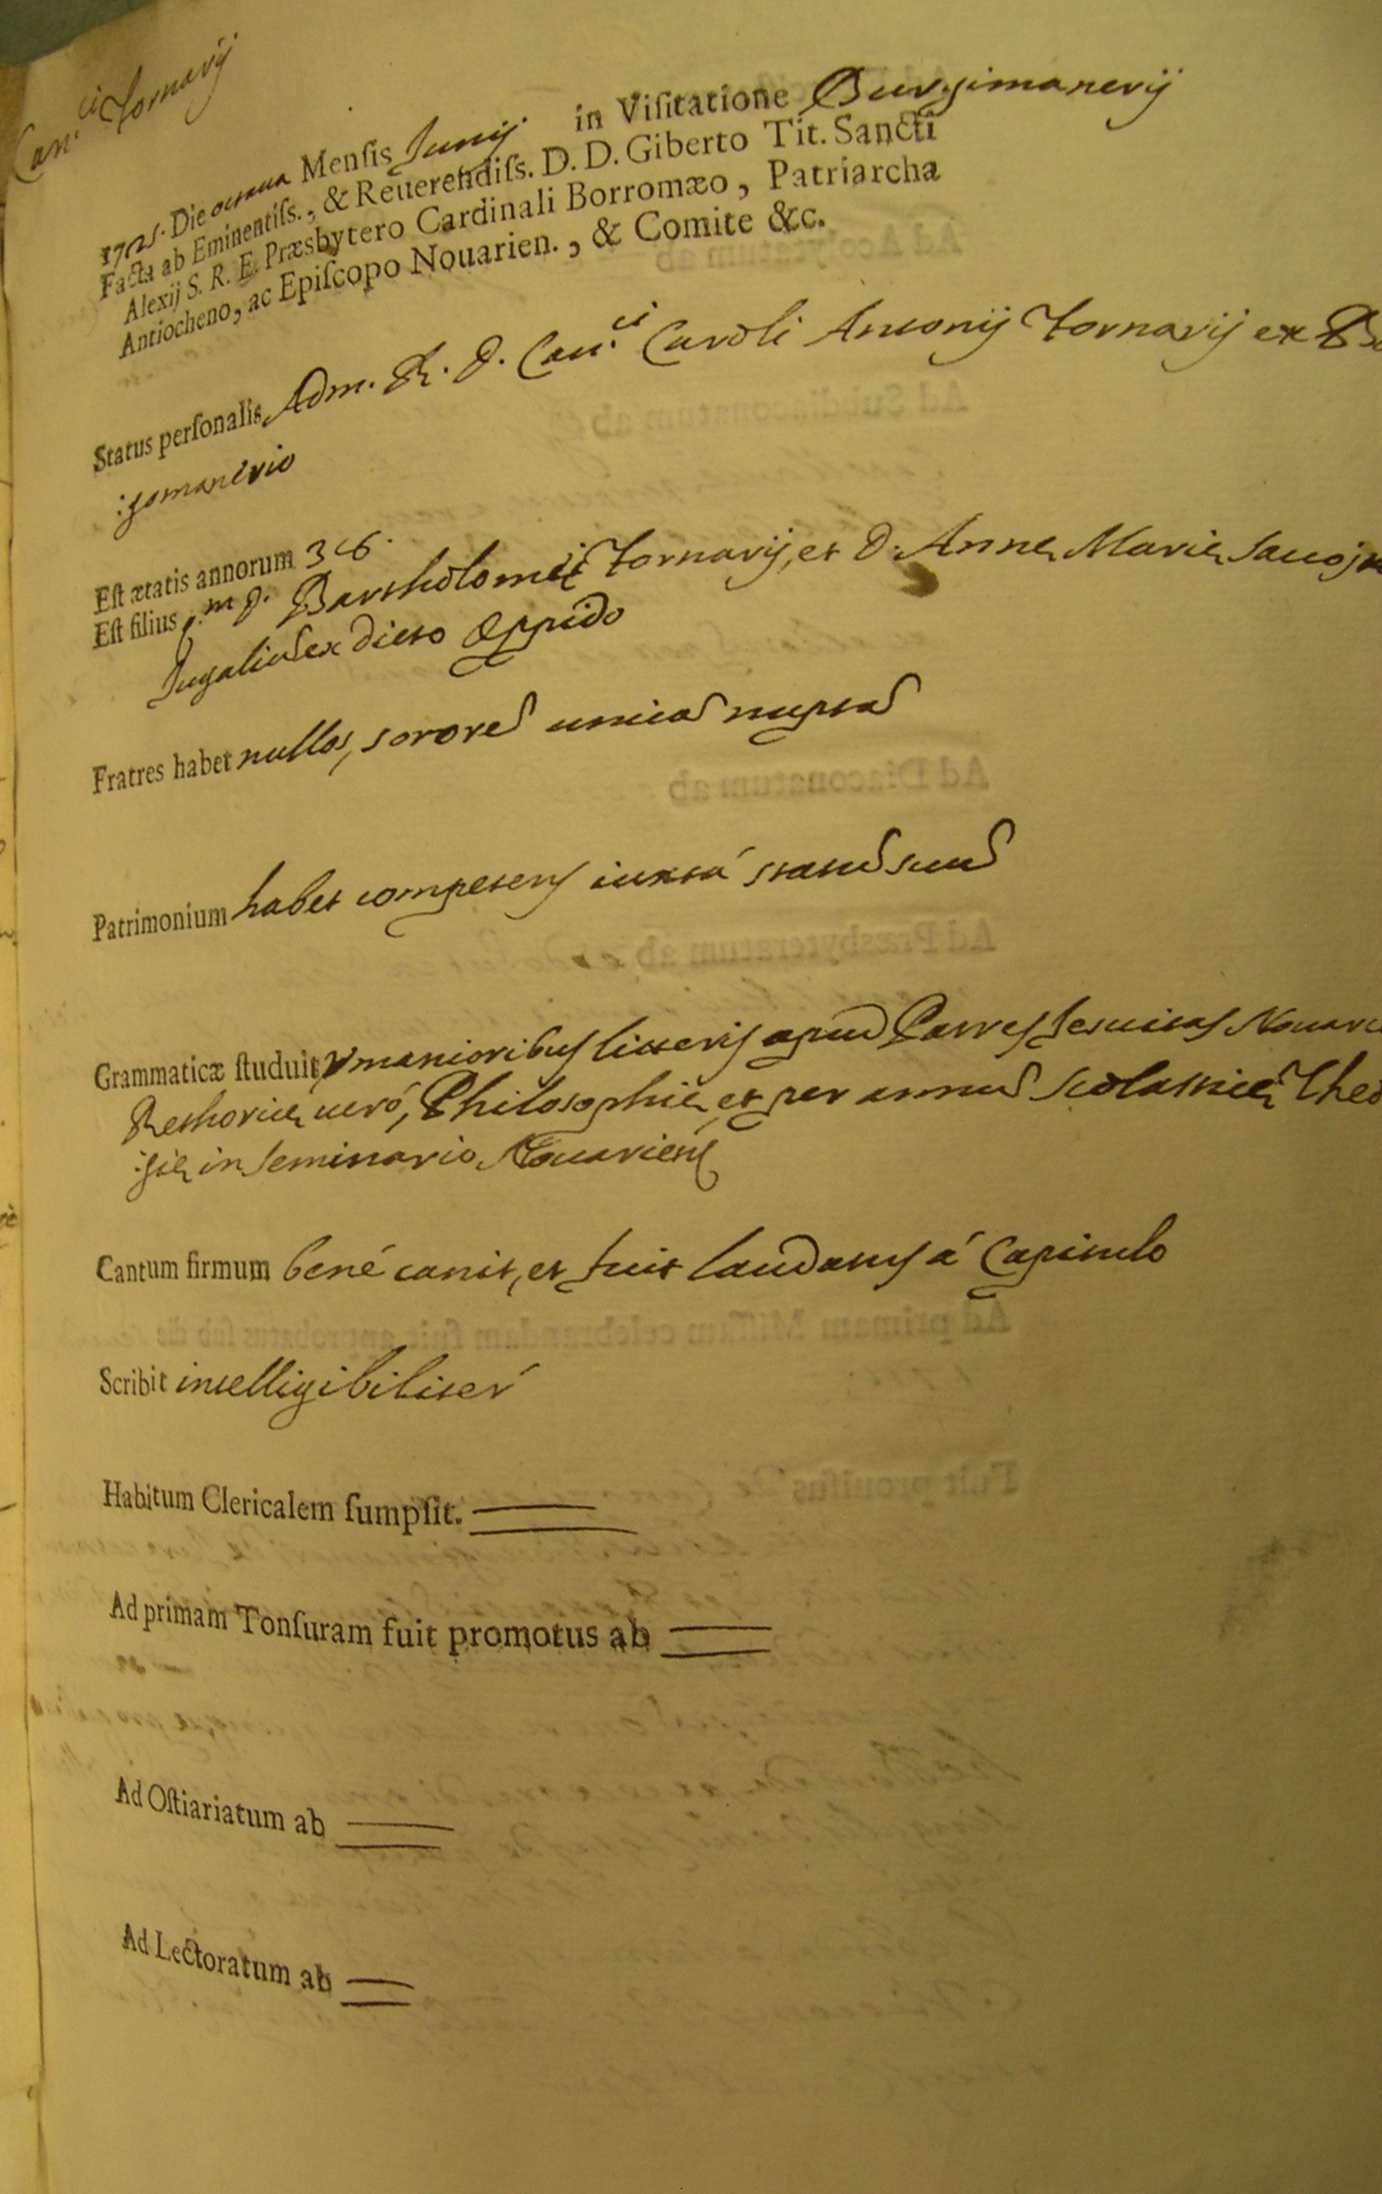 Can.ci Tornarij
1725. Die octaua Mensis Junij in Viſitatione Burgimanerij
Facta ab Eminentiſs., & Reuerendiſs. D. D. Giberto Tit. Sancti
Alexij S. R. E. Præsbytero Cardinali Borromæo, Patriarcha
Antiocheno, ac Epiſcopo Nouarien., & Comite &c.
Status perſonalis Adm. R. D. Can.ci Caroli Antonij Tornarij ex Bur
:gomanerio
Eſt ætatis annorum 36.
Eſt filius q.m D. Bartholomei Tornarij, et D. Annę Marię
Jugaliũ ex dicto Oppido
Fratres habet nullos, sororẽ unicã nuptã
Patrimonium habet competens iuxtá statũ suũ
Grammaticæ ſtuduit, Vmanioribus litteris apud Patres Jesuitas Nouarię
Rethoricę ueró, Philosophię, et per annũ scolasticę Theo
:gię in Seminario Nouariẽs
Cantum firmum bené canit, et fuit laudatus á Capitulo
Scribit intelligibilitér
Habitum Clericalem ſumpſit.
Ad primam Tonſuram fuit promotus ab
Ad Oſtiariatum ab
Ad Lectoratum ab